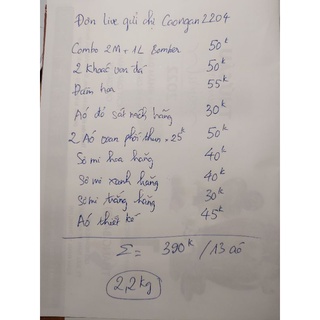 Đơn live gửi chị Caongan2204
Combo 2M + 1L Bomber 50k
2 Khoác von đá 50k
Đầm hoa 55k
Áo đỏ sát nách hãng 30k
2 Áo voan phối thun . 25k 50k
Sơ mi hoa hãng 40k
Sơ mi xanh hãng 40k
Sơ mi trắng hãng 30k
Áo thiết kế 45k
Σ = 390k / 13 áo
2,2kg